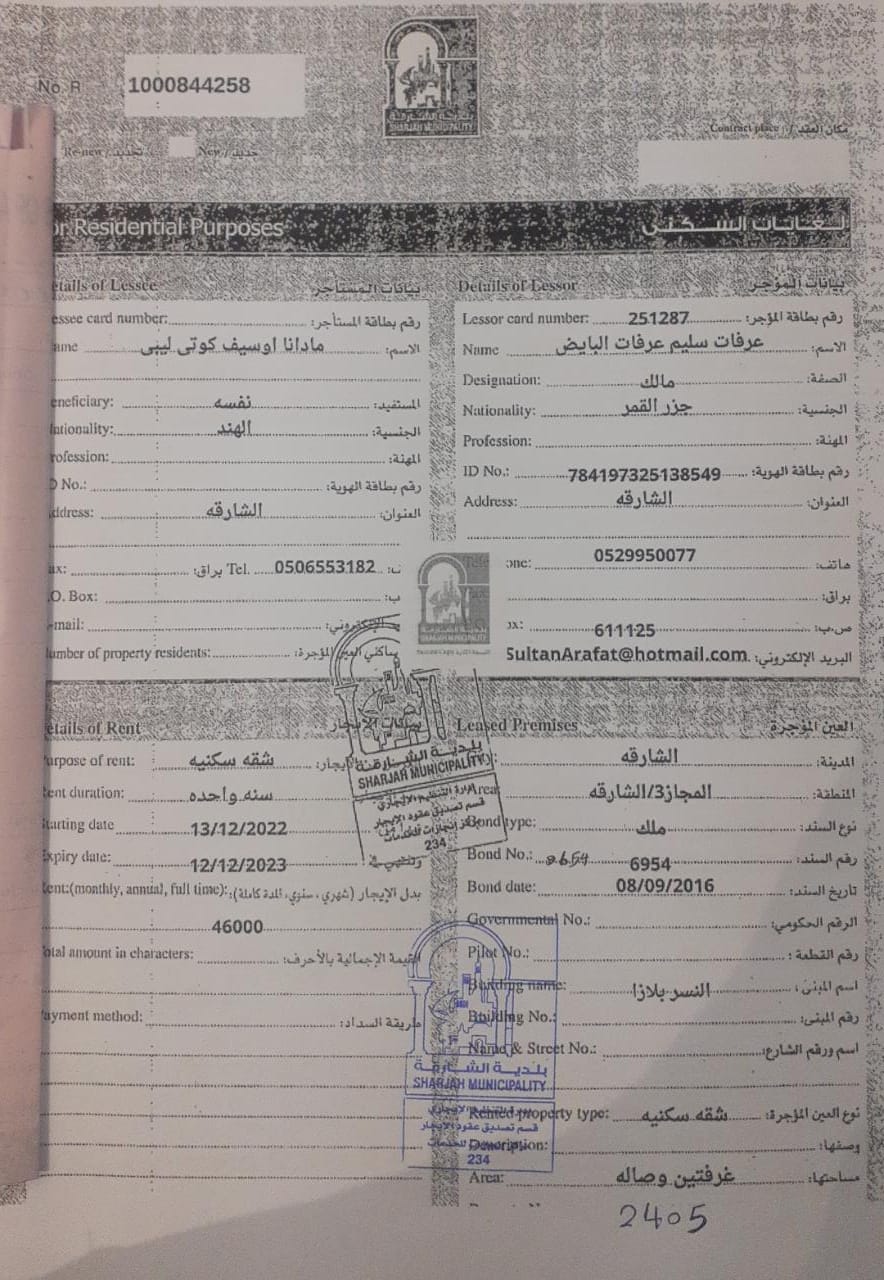 No. R 1000844258
بلدية الشارقة
SHARJAH MUNICIPALITY
Contract place / مكان العقد
Re-new / تجديد New / جديد
or Residential Purposes لغايات السكنى
etails of Lessee بيانات المستأجر
essee card number: رقم بطاقة المستأجر:
ame مادانا اوسيف كوتى ليبى الاسم:
eneficiary: نفسه المستفيد:
ationality: الهند الجنسية:
rofession: المهنة:
No.: رقم بطاقة الهوية:
ddress: الشارقه العنوان:
ax: براق: Tel. 0506553182
.O. Box: ب:
-mail: الإلكتروني:
umber of property residents: ساكني العين المؤجرة:
Details of Lessor بيانات المؤجر
Lessor card number: 251287 رقم بطاقة المؤجر:
Name عرفات سليم عرفات البايض الاسم:
Designation: مالك الصفة:
Nationality: جزر القمر الجنسية:
Profession: المهنة:
ID No.: 784197325138549 رقم بطاقة الهوية:
Address: الشارقه العنوان:
one: 0529950077 هاتف:
براق:
ox: 611125 ص.ب:
SultanArafat@hotmail.com البريد الإلكتروني:
بلدية الشارقة
SHARJAH MUNICIPALITY
etails of Rent بيانات الإيجار
urpose of rent: شقه سكنيه الإيجار:
ent duration: سنه واحده
tarting date 13/12/2022
Expiry date: 12/12/2023
ent:(monthly, annual, full time): بدل الإيجار (شهري، سنوي، المدة كاملة):
46000
otal amount in characters: القيمة الإجمالية بالأحرف:
ayment method: طريقة السداد:
بلدية الشارقة
SHARJAH MUNICIPALITY
إدارة التنظيم الإيجاري
قسم تصديق عقود الإيجار
234
Leased Premises العين المؤجرة
الشارقه المدينة:
Area المجاز3/الشارقه المنطقة:
Bond type: ملك نوع السند:
Bond No.: 6954 رقم السند:
Bond date: 08/09/2016 تاريخ السند:
Governmental No.: الرقم الحكومي:
Pilot No.: رقم القطعة:
Building name: النسر بلازا اسم المبنى:
Building No.: رقم المبنى:
Name & Street No.: اسم ورقم الشارع:
Rented property type: شقه سكنيه نوع العين المؤجرة:
Description: وصفها:
Area: غرفتين وصاله مساحتها:
بلدية الشارقة
SHARJAH MUNICIPALITY
قسم تصديق عقود الإيجار
234
2405